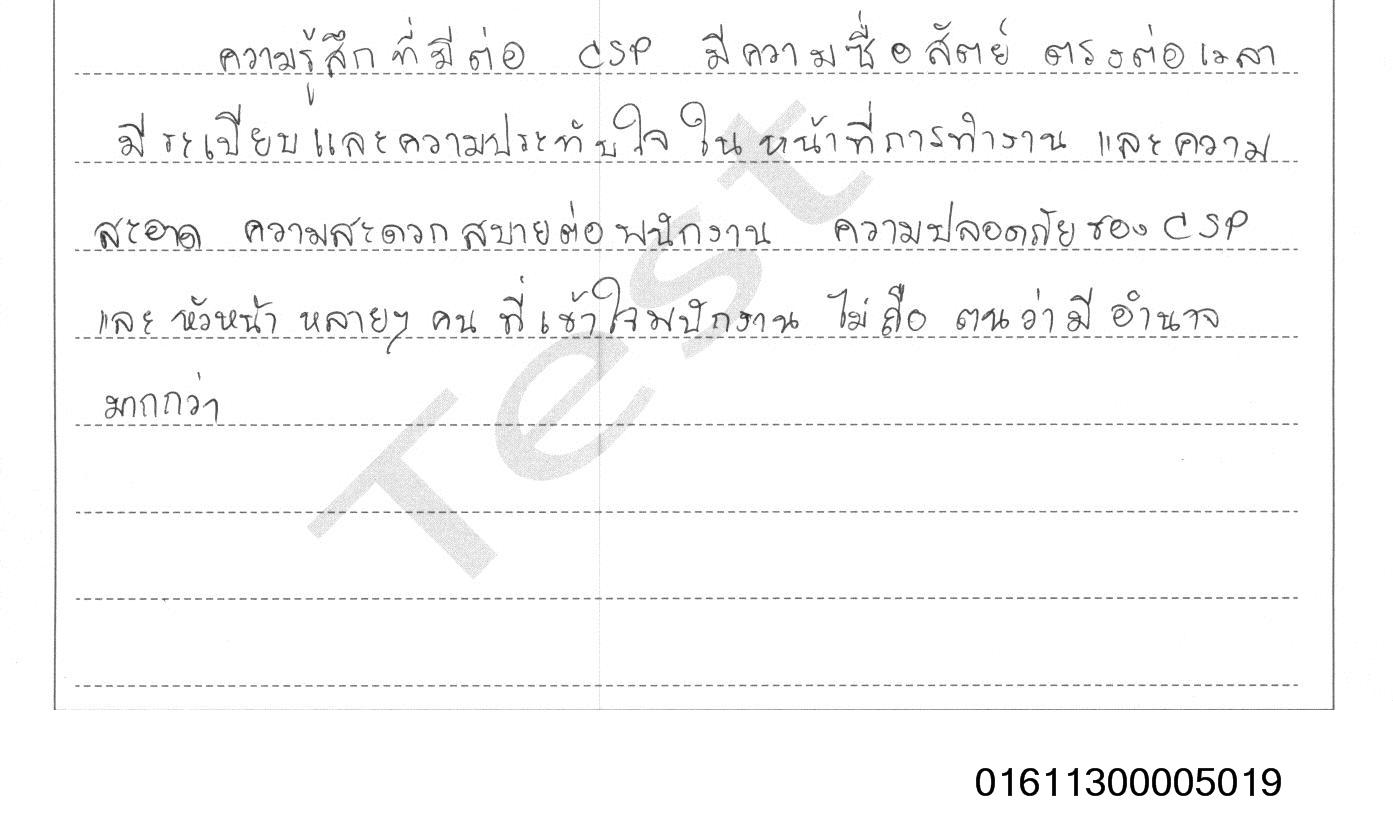 ความรู้สึกที่มีต่อ CSP มีความซื่อสัตย์ ตรงต่อเวลา
มีระเบียบและความประทับใจ ในหน้าที่การทำงาน และความ
สะอาด ความสะดวกสบายต่อพนักงาน ความปลอดภัยของ CSP
และ หัวหน้า หลายๆ คน ที่เข้าใจพนักงาน ไม่ถือ ตนว่ามี อำนาจ
มากกว่า
Test
01611300005019